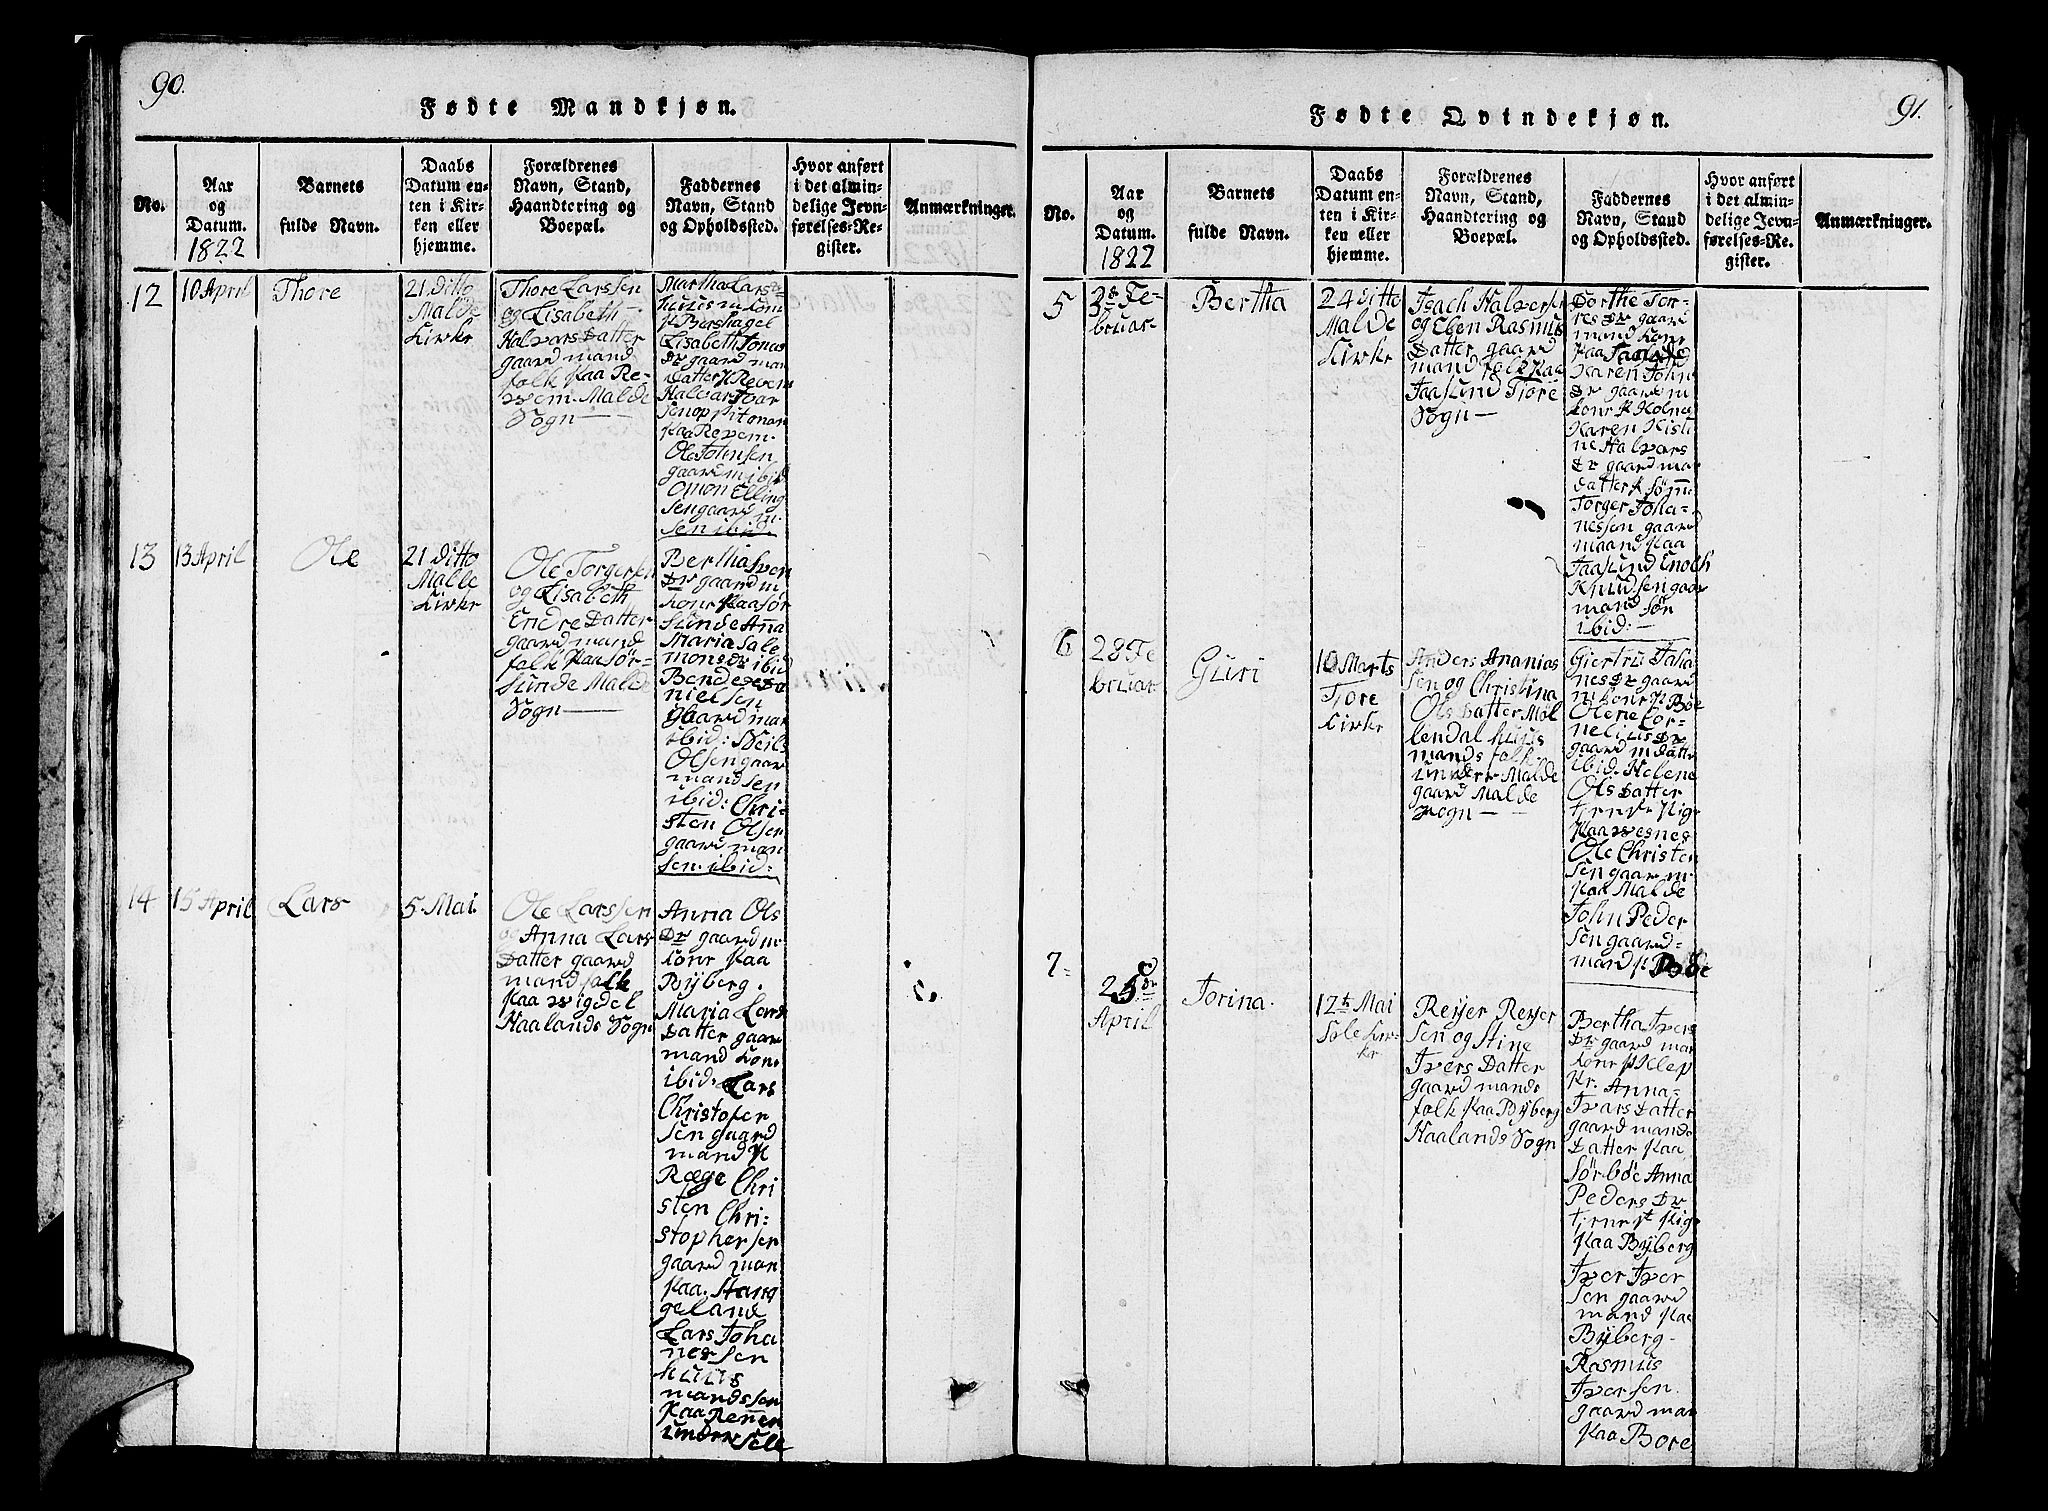 90.
Fødte Mandkjøn.
No.
Aar
og
Datum.
1822
Barnets
fulde Navn.
Daabs
Datum en-
ten i Kir-
ken eller
hjemme.
Forældrenes
Navn, Stand,
Haandtering og
Boepæl.
Faddernes
Navn, Stand
og Opholdsted.
Hvor anført
i det almin-
delige Jevn-
førelses-Re-
gister.
Anmærkninger.
12
10 April
Thore
21 Ditto
Malde
Kirke
Thore Larssen
og Lisabeth
Halvars Datter
gaard mand
folk paa Re-
vem. Malde
Sogn
Martha Lars Dr
huusm. kone
p Børshagel
Lisabeth Jonas
Dr gaard man
Datter p Revem
Halvar Ivar
sen
paa Revem.
Ole Johnsen
gaardm ibid
Omon Elling
sen gaard m.
sen ibid.
13
13 April
Ole
21 Ditto
Malle
Kirke
Ole Torgersen
og Lisabeth
Endre Datter
gaard mand
folk paa Sør-
sunde Malde
Sogn
Bertha Sven
Dr gaard m
kone paa Sør
sunde Anna
Maria Sale
mons Dr ibid
Bende Da
nielsen
gaard man
ibid: Neils
Olsen gaar
mand sen
ibid: Chri-
sten Olsen
gaard man
sen. ibid:
14
15 April
Lars
5 Mai.
Ole Larssen
og Anna Lars
Datter gaard
mand folk
paa Vigdel
Haalands Sogn
Anna Ols
Dr gaard m.
kone paa
Byberg.
Maria Lars
Datter gaar
mand kone
ibid: Lars
Christofer
sen gaard
mand p
Ræge Chri
sten Chri-
stophersen
gaard man
paa. Stang
geland
Lars Joha
nessen
huus
mandssen
paa Renner
under Sele
91.
Fødte Qvindekjøn.
No.
Aar
og
Datum.
1822
Barnets
fulde Navn.
Daabs
Datum en-
ten i Kir-
ken eller
hjemme.
Forældrenes
Navn, Stand,
Haandtering og
Boepæl.
Faddernes
Navn, Stand
og Opholdsted.
Hvor anført
i det almin-
delige Jevn-
førelses-Re-
gister.
Anmærkninger.
5
Fe-
bruar
Bertha
24 Ditto
Malde
Kirke
Isach Halvers
og Elen Rasmus
Datter gaard
mand folk paa
Jaasund Tjore
Sogn
Dorthe Tor-
res Dr gaard
mand kone
paa
Karen John
Dr gaard m
kone p Holme
Karen Kisti
ne Halvars
Dr gaard man
datter p Sømme
Torger Joha-
nessen gaard
mand paa
Jaasund Enoch
Knudsen gaar
mand søn
ibid:
6
28 Fe
bruar
Guri
10 Marts
Tjore
Kirke
Anders Ananias
sen og Christina
Ols Datter Møl
lendal huus
mands folk
under Malde
gaard Malde
Sogn
Giertru Joha
nes Dr gaard
m kone p. Bøe
Olene Cor-
nelius Dr
gaard m Datte
ibid. Helene
Ols Datter
tjenst. Pige
paa Vesnes
Ole Christen
sen gaard m.
paa Malde
John Peder
sen gaard-
mand p. Bøe
7
25de
April
Torina.
12te Mai
Sole Kir-
ke
Reyer Reyer
sen og Stine
Ivers Datter
gaard mands
folk paa Byberg
Haalands Sogn
Bertha Ivers
Dr gaard man
kone p Klep
Kr. Anna
Ivars Datter
gaard mands
Datter paa
Sørbøe Anna
Peders Dr
tjenest Pige
paa Byberg
Iver Iver
sen gaard
mand paa
Byberg-
Rasmus
Iversen.
gaard man
paa Bore